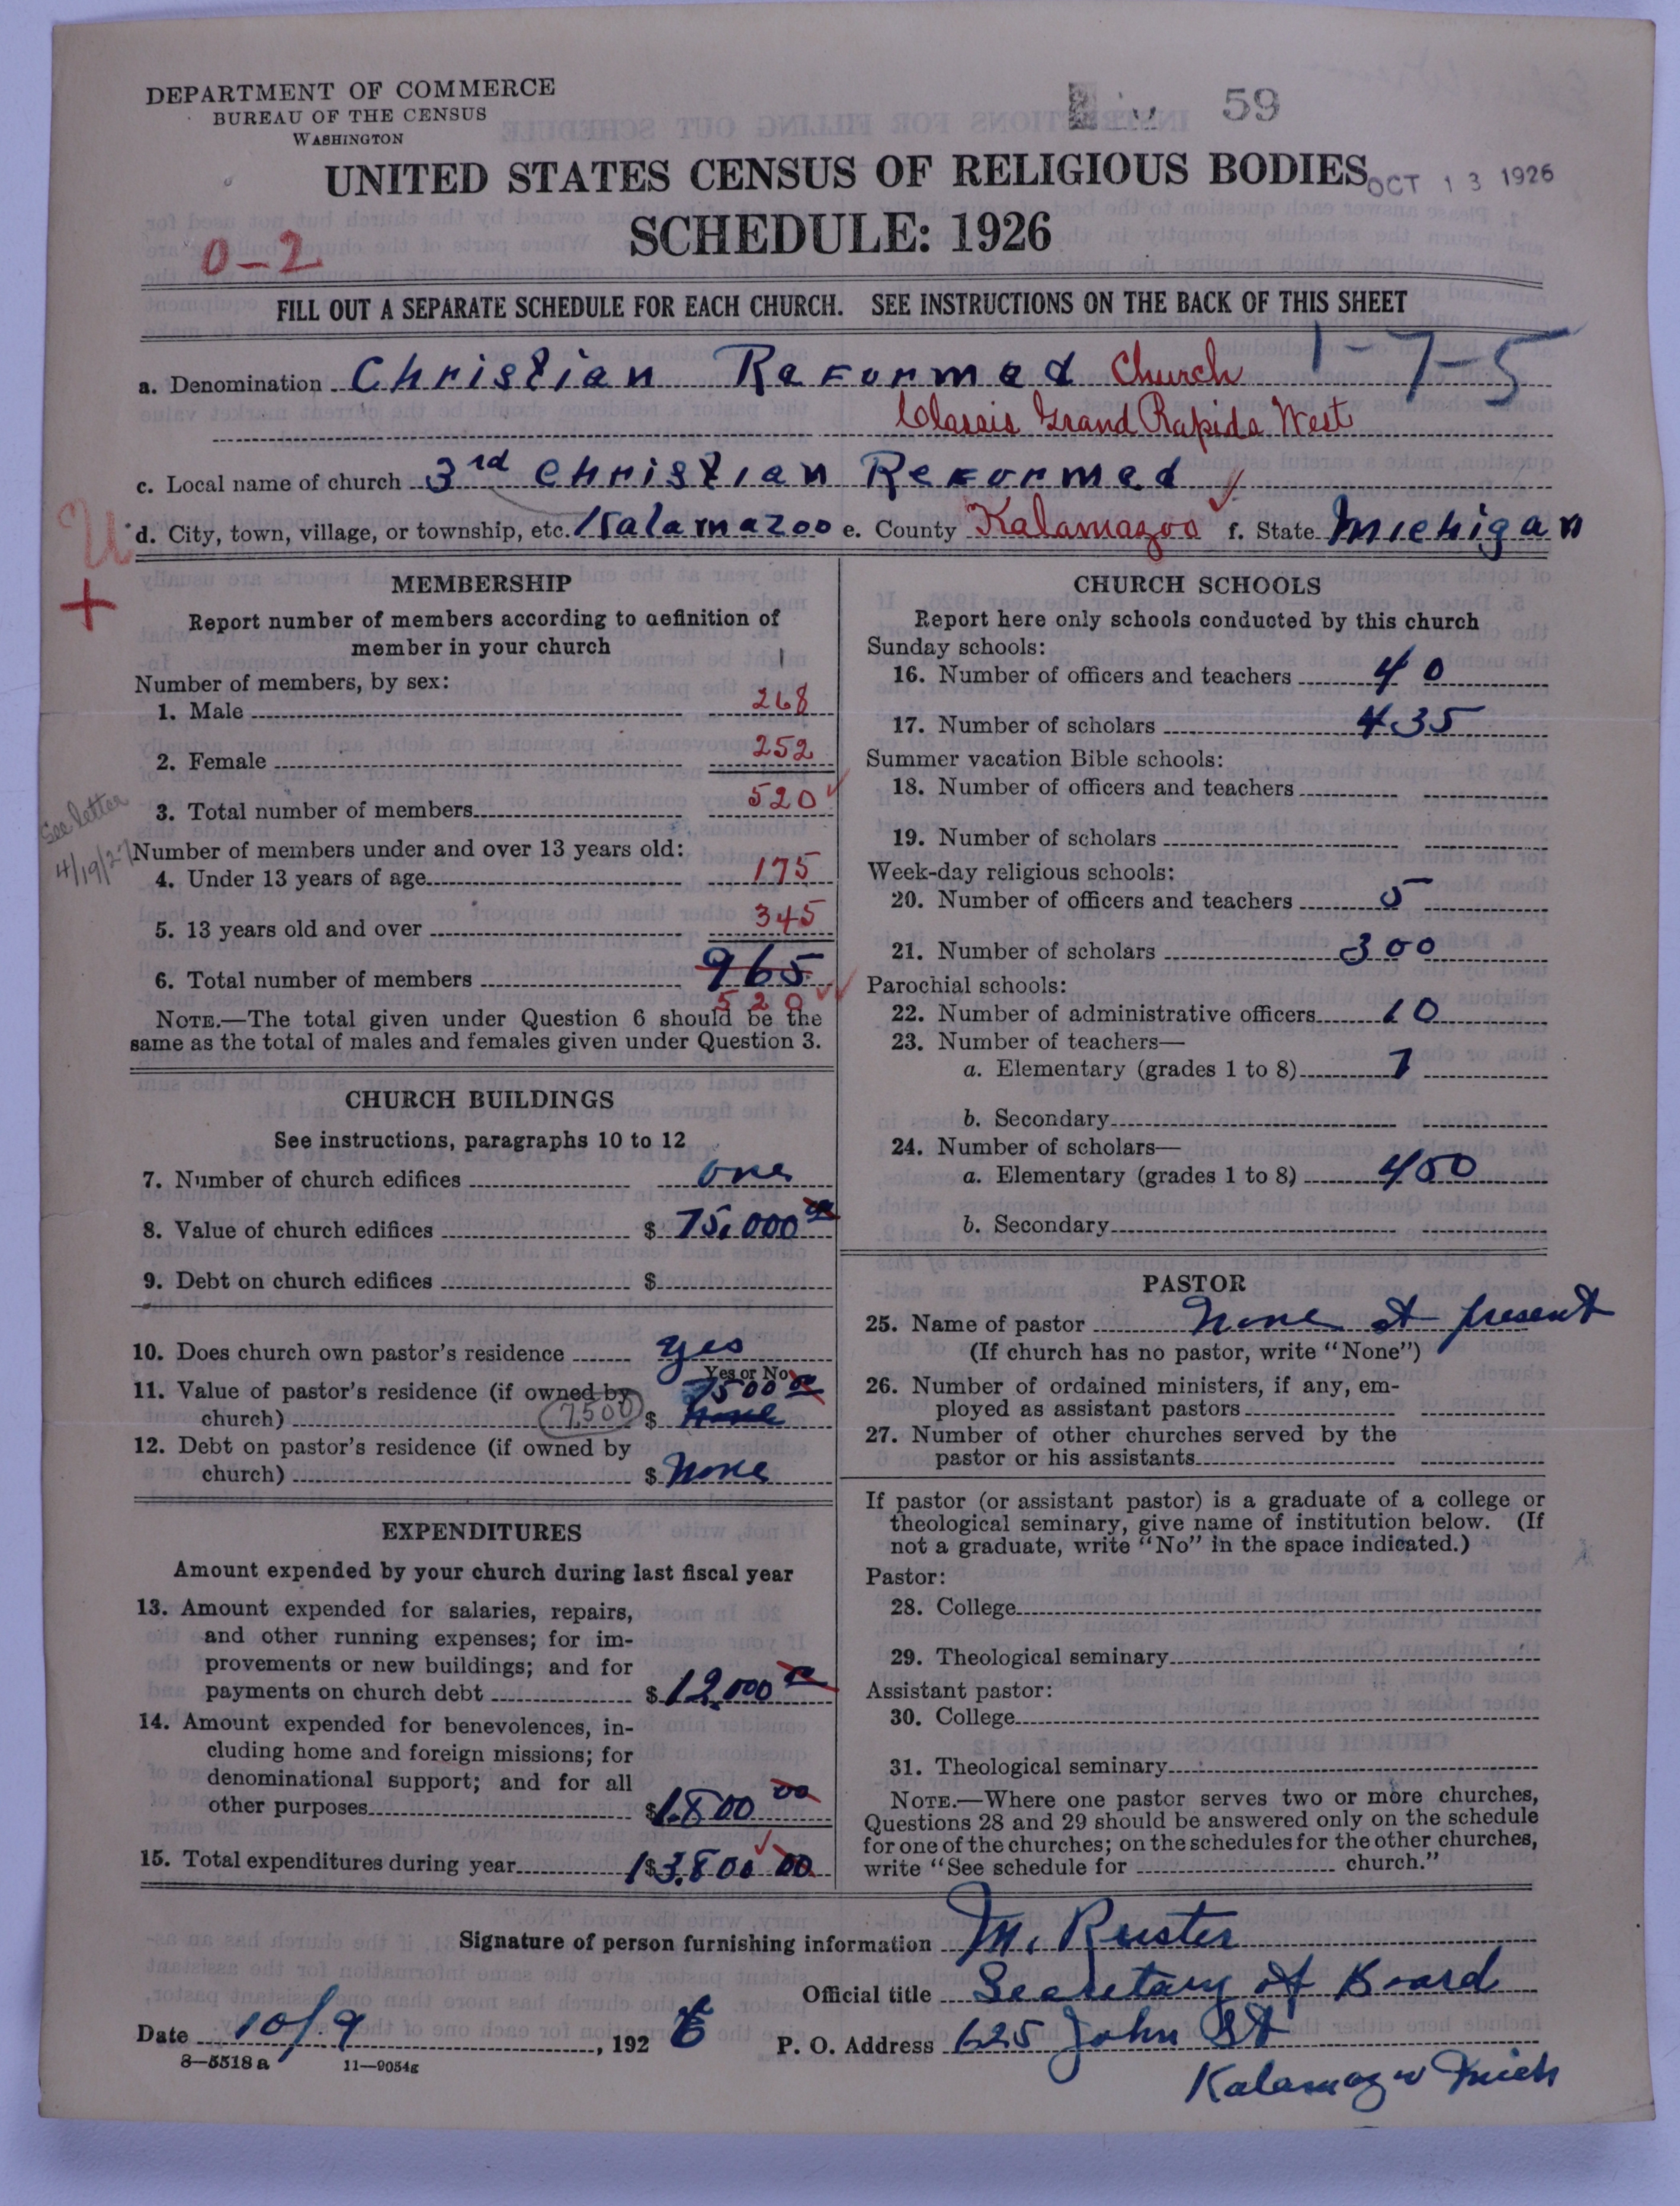 DEPARTMENT OF COMMERCE
BUREAU OF THE CENSUS
WASHINGTON
59
UNITED STATES CENSUS OF RELIGIOUS BODIES
OCT 13 1926
SCHEDULE: 1926
0-2
FILL OUT A SEPARATE SCHEDULE FOR EACH CHURCH. SEE INSTRUCTIONS ON THE BACK OF THIS SHEET
1-7-5
a. Denomination Christian Reformed Church
Classis Grand Rapids West
c. Local name of church 3rd Christian Reformed
U d. City, town, village, or township, etc. Kalamazoo e. County Kalamazoo f. State Michigan
+
MEMBERSHIP
Report number of members according to definition of
member in your church
Number of members, by sex:
1. Male 268
2. Female 252
3. Total number of members 520
See letter
4/19/27
Number of members under and over 13 years old:
4. Under 13 years of age 175
5. 13 years old and over 345
6. Total number of members 965
520
NOTE.—The total given under Question 6 should be the
same as the total of males and females given under Question 3.
CHURCH BUILDINGS
See instructions, paragraphs 10 to 12
7. Number of church edifices one
8. Value of church edifices $ 75,000 00
9. Debt on church edifices $
10. Does church own pastor's residence yes
Yes or No
11. Value of pastor's residence (if owned by 7500 00
church) 7,500 $ none
12. Debt on pastor's residence (if owned by
church) $ None
EXPENDITURES
Amount expended by your church during last fiscal year
13. Amount expended for salaries, repairs,
and other running expenses; for im-
provements or new buildings; and for
payments on church debt $ 12,000 00
14. Amount expended for benevolences, in-
cluding home and foreign missions; for
denominational support; and for all
other purposes $ 1.800 00
15. Total expenditures during year $ 13.800 00
CHURCH SCHOOLS
Report here only schools conducted by this church
Sunday schools:
16. Number of officers and teachers 40
17. Number of scholars 435
Summer vacation Bible schools:
18. Number of officers and teachers
19. Number of scholars
Week-day religious schools:
20. Number of officers and teachers 5
21. Number of scholars 300
Parochial schools:
22. Number of administrative officers 10
23. Number of teachers—
a. Elementary (grades 1 to 8) 7
b. Secondary
24. Number of scholars—
a. Elementary (grades 1 to 8) 400
b. Secondary
PASTOR
25. Name of pastor None at present
(If church has no pastor, write "None")
26. Number of ordained ministers, if any, em-
ployed as assistant pastors
27. Number of other churches served by the
pastor or his assistants
If pastor (or assistant pastor) is a graduate of a college or
theological seminary, give name of institution below. (If
not a graduate, write "No" in the space indicated.)
Pastor:
28. College
29. Theological seminary
Assistant pastor:
30. College
31. Theological seminary
NOTE.—Where one pastor serves two or more churches,
Questions 28 and 29 should be answered only on the schedule
for one of the churches; on the schedules for the other churches,
write "See schedule for church."
Signature of person furnishing information M. Ruster
Official title Secretary of Board
Date 10/9, 1926 P. O. Address 625 John St
8—5518 a 11—9054g
Kalamazoo Mich